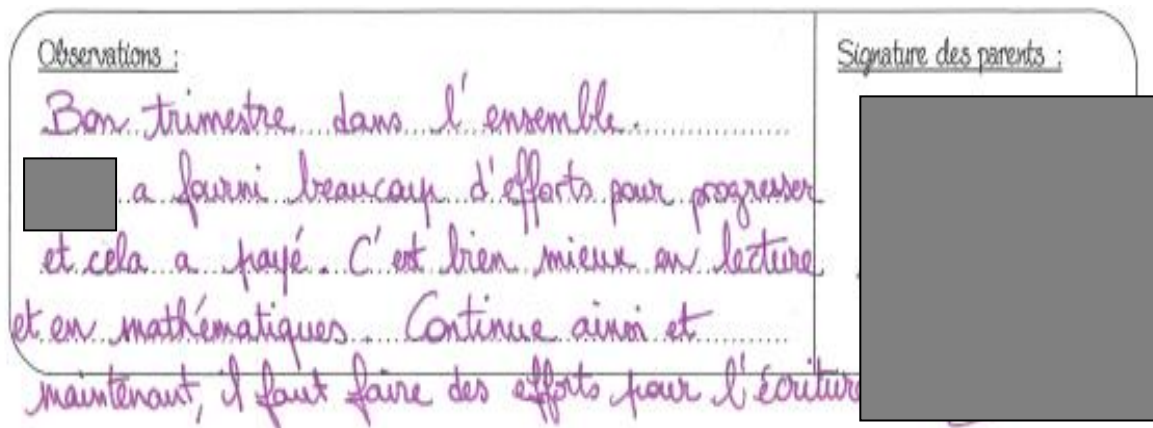 Observations :
Signature des parents :
Bon trimestre dans l'ensemble.
a fourni beaucoup d'efforts pour progresser
et cela a payé. C'est bien mieux en lecture
et en mathématiques. Continue ainsi et
maintenant, il faut faire des efforts pour l'écriture